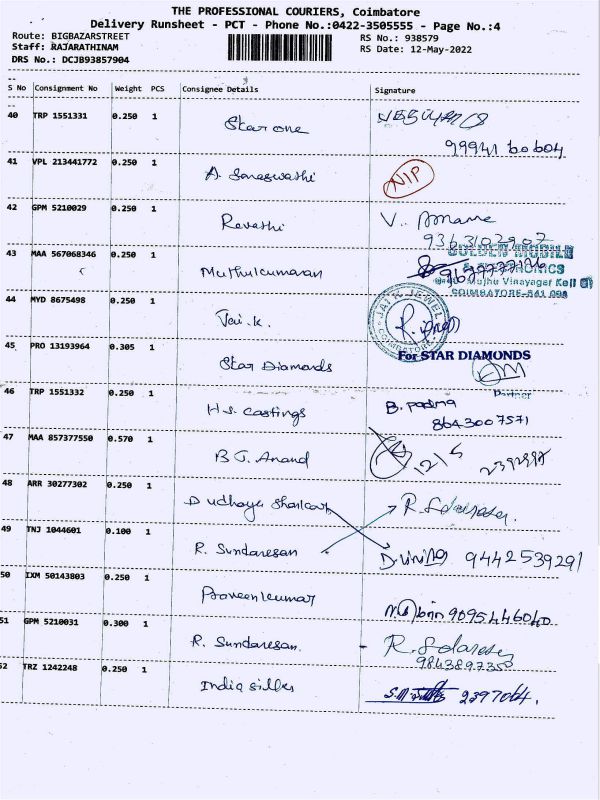 THE PROFESSIONAL COURIERS, Coimbatore
Delivery Runsheet - PCT - Phone No.:0422-3505555 - Page No.:4
Route: BIGBAZARSTREET RS No.: 938579
Staff: RAJARATHINAM RS Date: 12-May-2022
DRS No.: DCJB93857904
S No Consignment No Weight PCS Consignee Details Signature
40 TRP 1551331 0.250 1 Star one
99941 60604
41 VPL 213441772 0.250 1 A. Saraswathi NIP
42 GPM 5210029 0.250 1 Revathi V.
9363102907
43 MAA 567068346 0.250 1 Muthukumaran
GOLDEN MOBILE
& ELECTRONICS
Muthu Vinayagar Koil
COIMBATORE-641 001
44 MYD 8675498 0.250 1 Jai.k. JAI K JEWEL COIMBATORE
45 PRO 13193964 0.305 1 Star Diamonds For STAR DIAMONDS
Partner
46 TRP 1551332 0.250 1 H.S. Castings B. Padma
8643007571
47 MAA 857377550 0.570 1 B J. Anand 12/5
48 ARR 30277302 0.250 1 D udhaya Shankar R.
49 TNJ 1044601 0.100 1 R. Sundaresan 9442539291
50 IXM 50143803 0.250 1 Praveenkumar 9095446040
51 GPM 5210031 0.300 1 R. Sundaresan. R.
9843897350
52 TRZ 1242248 0.250 1 India silks 2397064.